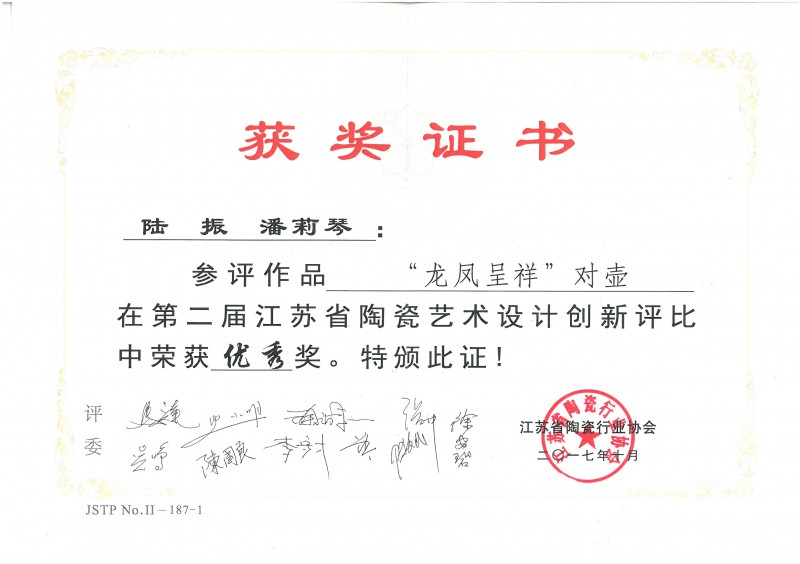 获奖证书
陆 振 潘莉琴：
参评作品 “龙凤呈祥”对壶
在第二届江苏省陶瓷艺术设计创新评比
中荣获优秀奖。特颁此证！
评委
陳國良
江苏省陶瓷行业协会
二〇一七年十月
江苏省陶瓷行业协会
JSTP No.II－187-1